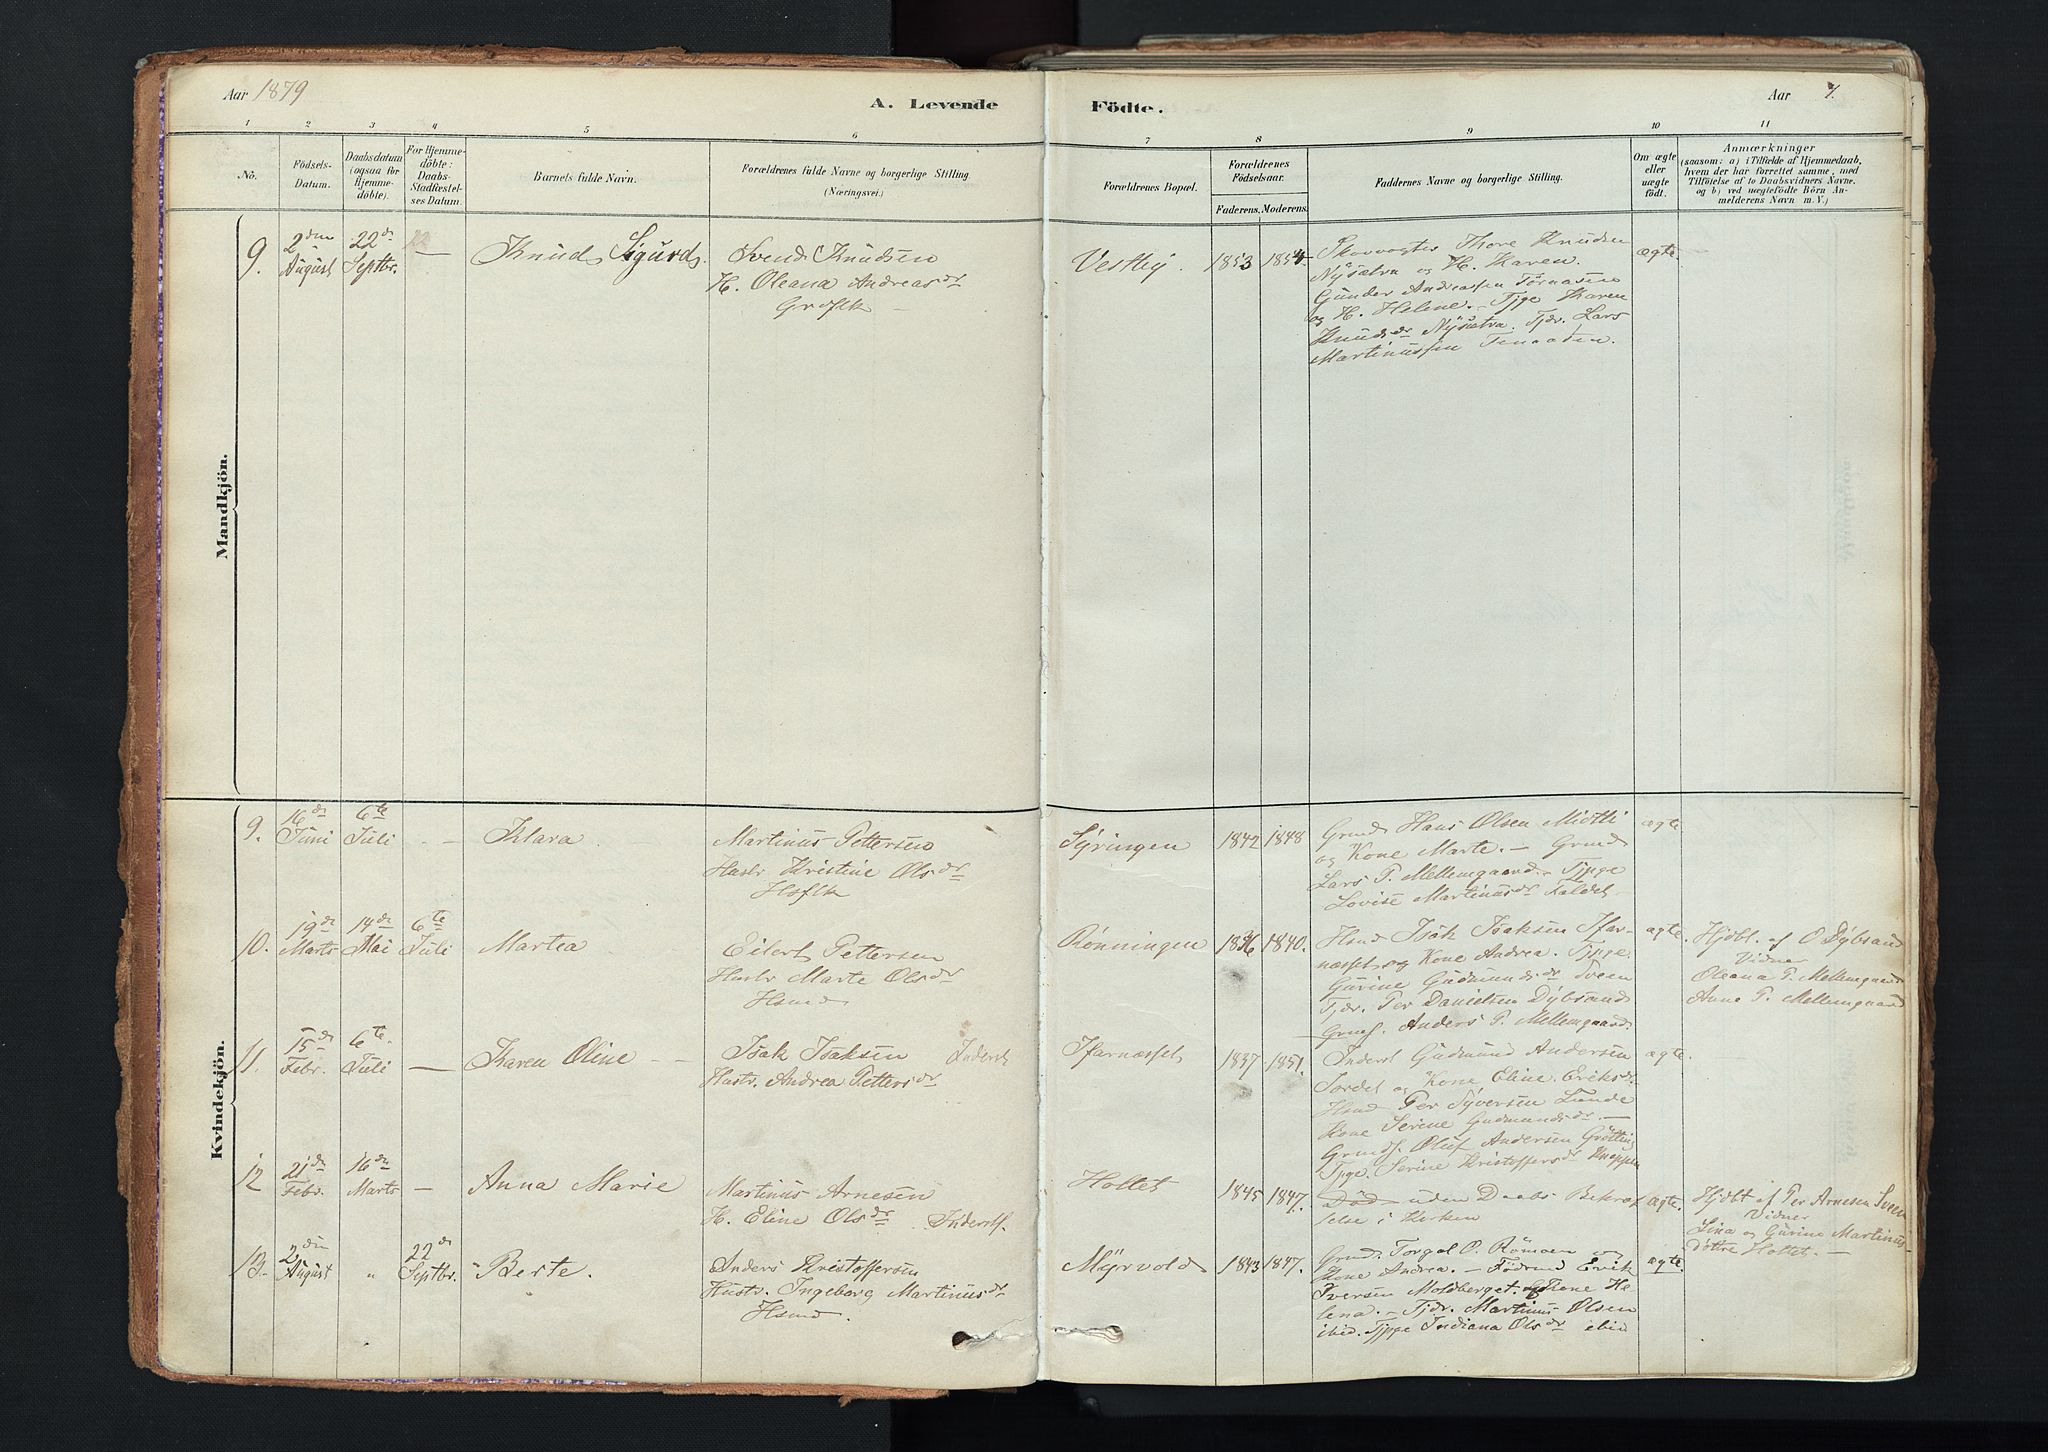 Aar 1879
A. Levende Födte.
Aar 7.
1 2 3 4 5 6 7 8 9 10 11
No.
Födsels-
Datum.
Daabsdatum
(ogsaa for
Hjemme-
döbte).
For Hjemme-
döbte:
Daabs-
Stadfæstel-
ses Datum.
Barnets fulde Navn.
Forældrenes fulde Navne og borgerlige Stilling
(Næringsvei.)
Forældrenes Bopæl.
Forældrenes
Födselsaar.
Faderens. Moderens.
Faddernes Navne og borgerlige Stilling.
Om ægte
eller
uægte
födt.
Anmærkninger
(saasom: a) i Tilfælde af Hjemmedaab,
hvem der har forrettet samme, med
Tilföielse af to Daabsvidners Navne,
og b) ved uægtefödte Börn An-
melderens Navn m. V.)
Mandkjön.
9.
2den
August
22de
Septbr.
Knud Sigurd.
Svend Knudsen
H. Oleana Andreasdr
Vestby.
1853
Skovvogter Thore Knudsen
Nysætra og H. Karen.
Gunder Andreassen
og H. Helene. Tjpge Karen
Knudsdr Nysætra. Tjdr. Lars
Martinussen
ægte
Kvindekjön.
9.
16de
Juni
6te
Juli
Klara
Martinus Pettersen
Hustr Kristine Olsdr
Syringen
1842 1848
Grmd Hans Olsen Midtli
og Kone Marte. — Grmd
Lars P. Mellemgaard. Tjpge
Lovise Martinusdr
ægte
10.
19de
Marts
14de
Mai
6te
Juli
Martea
Eilert Pettersen
Hustr Marte Olsdr
Hsmd
Rønningen
1836 1840.
Hsmd Isak Isaksen Ifar-
næsset og Kone Andrea. Tjpge.
Gurine Gudmundsdr Sveen
Tjdr. Per Danielsen Dybsand
Anders P. Mellemgaard.
ægte.
Hjdbt. af O Dybsand
Vidner
Oleana P. Mellemgaard
Anne P. Mellemgaard
11.
15de
Febr.
6te
Juli
Karen Oline
Isak Isaksen Inderst
Hustr. Andrea Pettersdr
Ifarnæsset
1837 1851.
Inderst Gudmund Andersen
og Kone Eline Eriksdr.
Hsmd Per Syversen Lunde
Kone Serine Gudmundsdr. —
Oluf Andersen Grøtting
Tjpge. Serine Kristoffersdr
ægte.
12
21de
Febr.
16de
Marts
Anna Marie
Martinus Arnesen
H. Eline Olsdr
Holtet
1845 1847.
Død uden Daabs Bekræf-
telse i Kirken
ægte.
Hjdbt af Per Arnesen
Vidner
Lina og Gurine Martinus-
døttre Holtet. —
13.
2den
August
"
22de
Septbr.
Berte.
Anders Kristoffersen
Hustr. Ingeborg Martinusdr
Hsmd.
Myrvold
1843 1847.
Grmd. Torgal O. Römoen og
Kone Andrea. — Erik
Iversen Moldberget og Kone He-
lena. — Tjdr. Martinus Olsen
ibid. Tjpge Indiana Olsdr ibid
ægte.